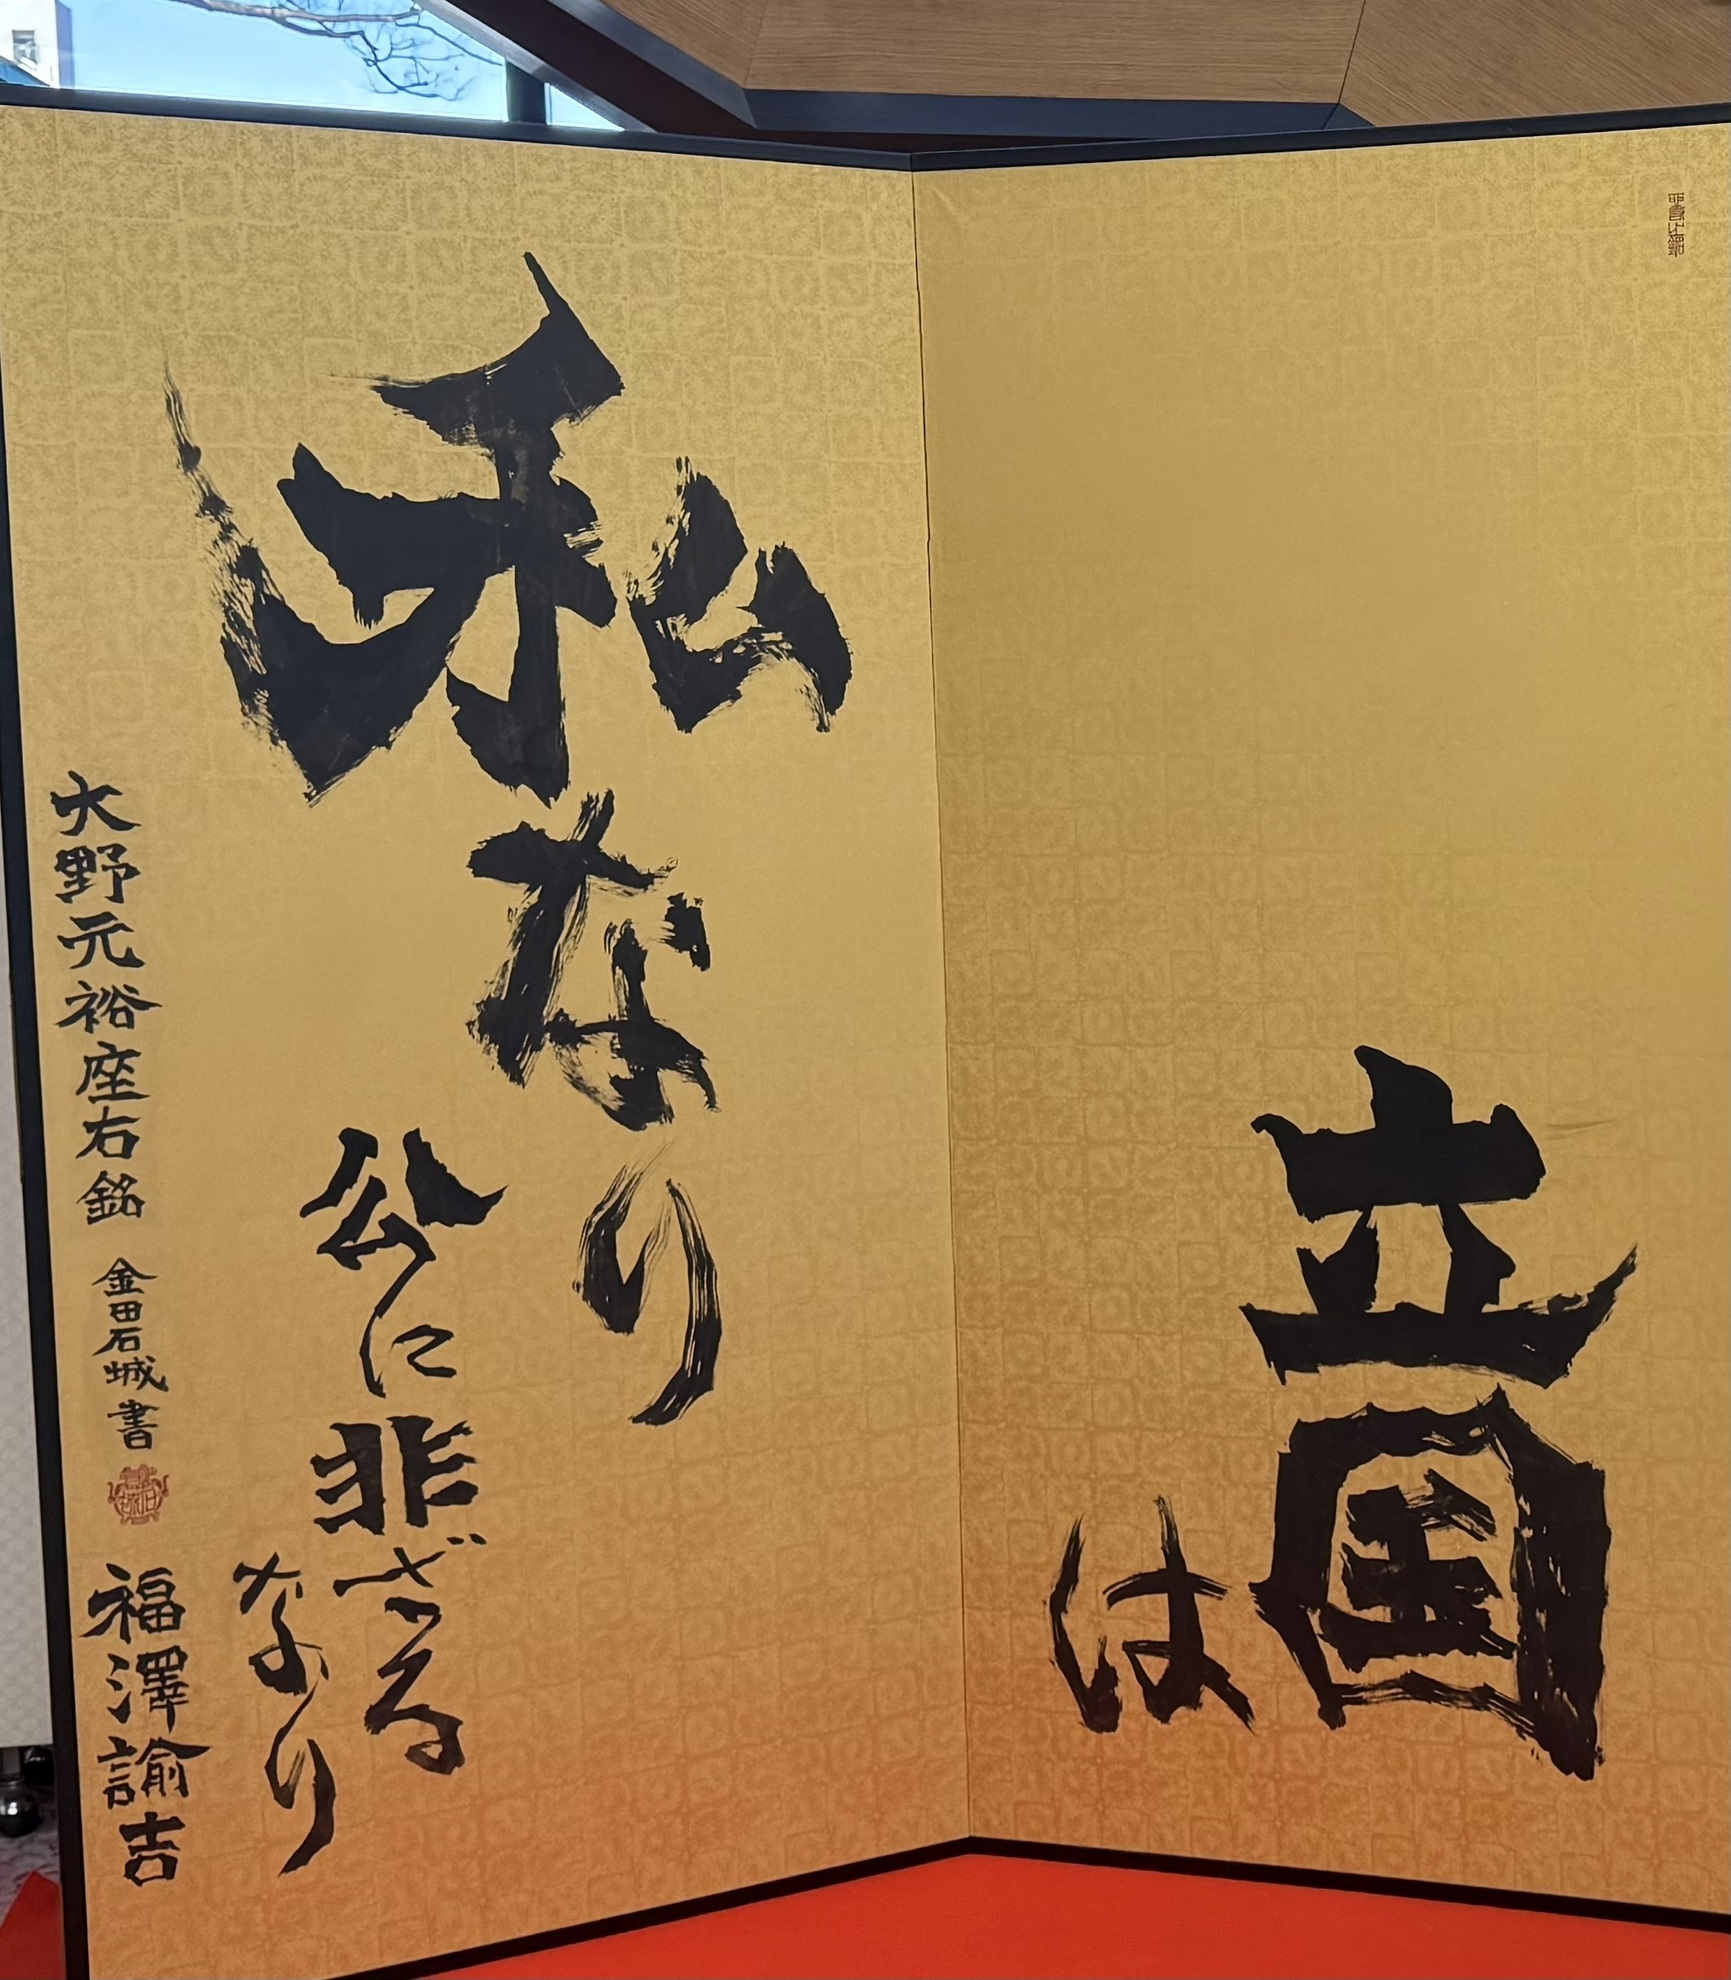 立国
は
私なり
公に非ざる
なり
大野元裕座右銘
金田石城書
福澤諭吉